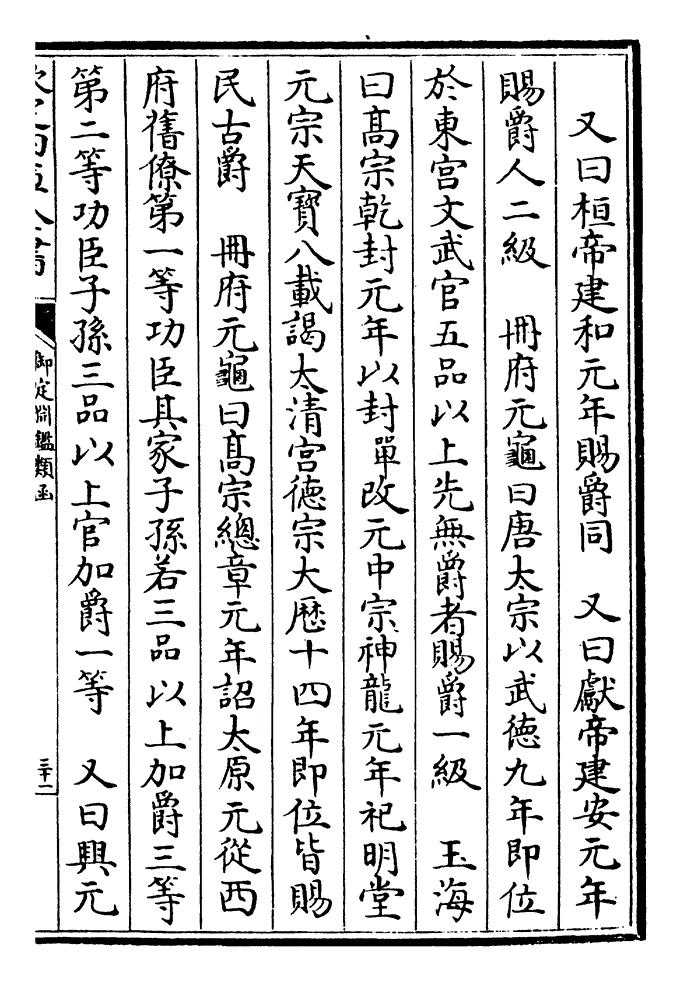 又曰桓帝建和元年賜爵同　又曰獻帝建安元年
賜爵人二級　冊府元龜曰唐太宗以武德九年即位
於東宮文武官五品以上先無爵者賜爵一級　玉海
曰髙宗乾封元年以封單改元中宗神龍元年祀明堂
元宗天寳八載謁太清宮德宗大厯十四年即位皆賜
民古爵　冊府元龜曰髙宗總章元年詔太原元從西
府舊僚第一等功臣其家子孫若三品以上加爵三等
第二等功臣子孫三品以上官加爵一等　又曰興元
御定淵鑑類函
三十二